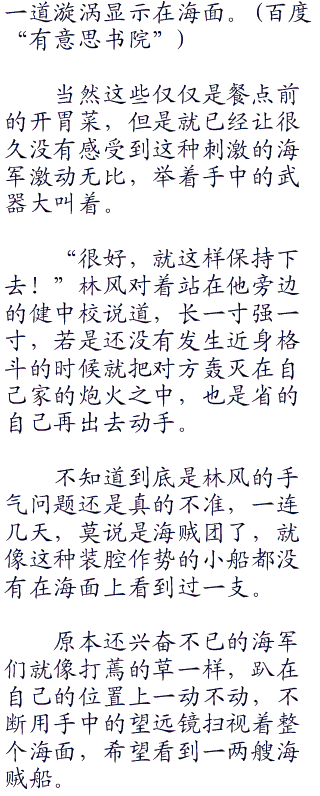 一道漩涡显示在海面。(百度
“有意思书院”)
当然这些仅仅是餐点前
的开胃菜，但是就已经让很
久没有感受到这种刺激的海
军激动无比，举着手中的武
器大叫着。
“很好，就这样保持下
去！”林风对着站在他旁边
的健中校说道，长一寸强一
寸，若是还没有发生近身格
斗的时候就把对方轰灭在自
己家的炮火之中，也是省的
自己再出去动手。
不知道到底是林风的手
气问题还是真的不准，一连
几天，莫说是海贼团了，就
像这种装腔作势的小船都没
有在海面上看到过一支。
原本还兴奋不已的海军
们就像打蔫的草一样，趴在
自己的位置上一动不动，不
断用手中的望远镜扫视着整
个海面，希望看到一两艘海
贼船。